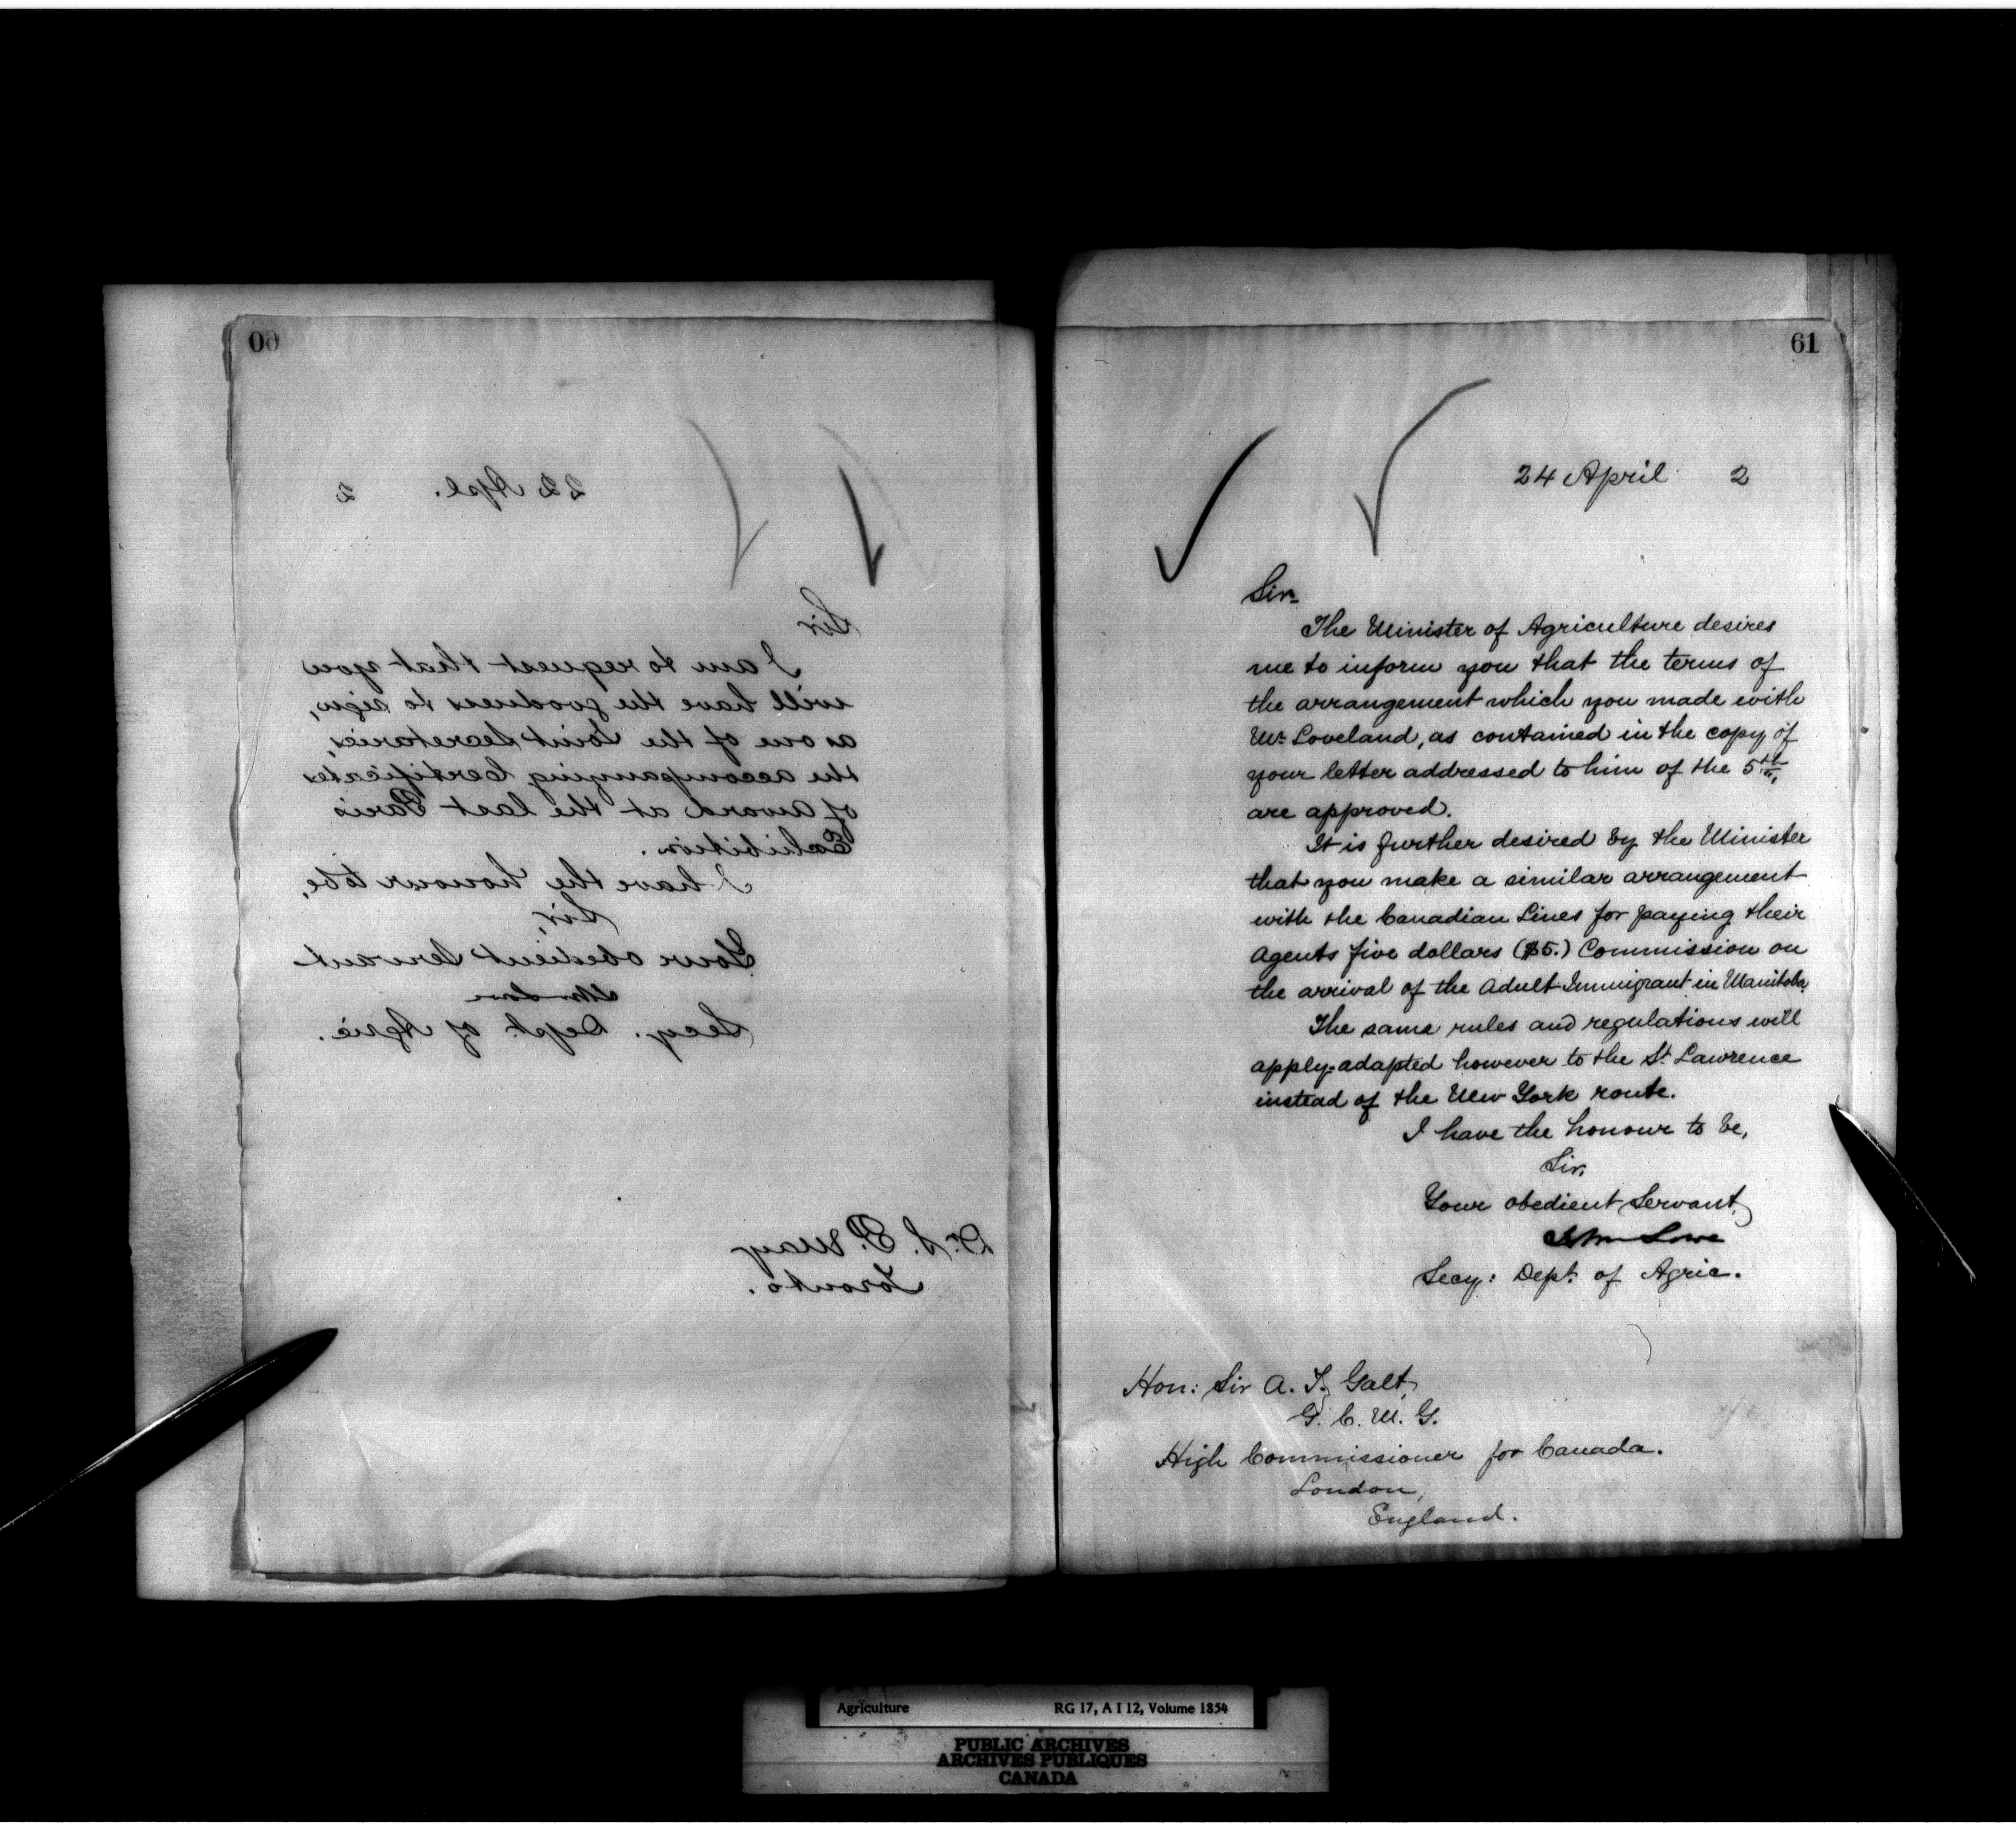 00
22 Apl. 2
Sir
I am to request that you
will have the goodness to sign,
as one of the Joint Secretaries,
the accompanying Certificates
of award at the last Paris
Exhibition.
I have the honour to be,
Sir,
Your obedient Servant
John Lowe
Secy. Dept. of Agric.
Dr. S. P. May
Toronto.
61
24 April 2
Sir.
The Minister of Agriculture desires
me to inform you that the terms of
the arrangement which you made with
Mr. Loveland, as contained in the copy of
your letter addressed to him of the 5th,
are approved.
It is further desired by the Minister
that you make a similar arrangement
with the Canadian Lines for paying their
Agents five dollars ($5.) Commission on
the arrival of the Adult Immigrant in Manitoba.
The same rules and regulations will
apply-adapted however to the St. Lawrence
instead of the New York route.
I have the honour to be,
Sir,
Your obedient Servant,
John Lowe
Secy: Dept. of Agric.
Hon: Sir A. T. Galt,
G. C. M. G.
High Commissioner for Canada.
London,
England.
Agriculture RG 17, A I 12, Volume 1854
PUBLIC ARCHIVES
ARCHIVES PUBLIQUES
CANADA